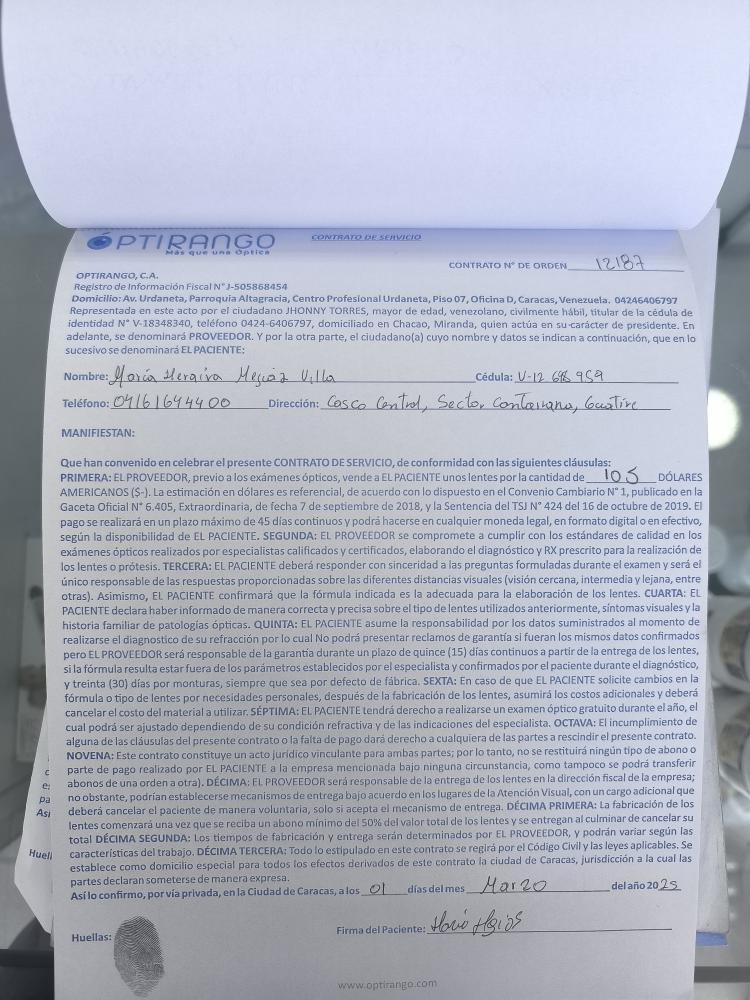 ÓPTIRANGO
Más que una Óptica
CONTRATO DE SERVICIO
CONTRATO N° DE ORDEN 12187
OPTIRANGO, C.A.
Registro de Información Fiscal N° J-505868454
Domicilio: Av. Urdaneta, Parroquia Altagracia, Centro Profesional Urdaneta, Piso 07, Oficina D, Caracas, Venezuela. 04246406797
Representada en este acto por el ciudadano JHONNY TORRES, mayor de edad, venezolano, civilmente hábil, titular de la cédula de
identidad N° V-18348340, teléfono 0424-6406797, domiciliado en Chacao, Miranda, quien actúa en su carácter de presidente. En
adelante, se denominará PROVEEDOR. Y por la otra parte, el ciudadano(a) cuyo nombre y datos se indican a continuación, que en lo
sucesivo se denominará EL PACIENTE:
Nombre: María Villa Cédula: V-12 698 959
Teléfono: 04161644400 Dirección: Casco Central, Sector Guatire
MANIFIESTAN:
Que han convenido en celebrar el presente CONTRATO DE SERVICIO, de conformidad con las siguientes cláusulas:
PRIMERA: EL PROVEEDOR, previo a los exámenes ópticos, vende a EL PACIENTE unos lentes por la cantidad de 105 DÓLARES
AMERICANOS ($-). La estimación en dólares es referencial, de acuerdo con lo dispuesto en el Convenio Cambiario N° 1, publicado en la
Gaceta Oficial N° 6.405, Extraordinaria, de fecha 7 de septiembre de 2018, y la Sentencia del TSJ N° 424 del 16 de octubre de 2019. El
pago se realizará en un plazo máximo de 45 días continuos y podrá hacerse en cualquier moneda legal, en formato digital o en efectivo,
según la disponibilidad de EL PACIENTE. SEGUNDA: EL PROVEEDOR se compromete a cumplir con los estándares de calidad en los
exámenes ópticos realizados por especialistas calificados y certificados, elaborando el diagnóstico y RX prescrito para la realización de
los lentes o prótesis. TERCERA: EL PACIENTE deberá responder con sinceridad a las preguntas formuladas durante el examen y será el
único responsable de las respuestas proporcionadas sobre las diferentes distancias visuales (visión cercana, intermedia y lejana, entre
otras). Asimismo, EL PACIENTE confirmará que la fórmula indicada es la adecuada para la elaboración de los lentes. CUARTA: EL
PACIENTE declara haber informado de manera correcta y precisa sobre el tipo de lentes utilizados anteriormente, síntomas visuales y la
historia familiar de patologías ópticas. QUINTA: EL PACIENTE asume la responsabilidad por los datos suministrados al momento de
realizarse el diagnostico de su refracción por lo cual No podrá presentar reclamos de garantía si fueran los mismos datos confirmados
pero EL PROVEEDOR será responsable de la garantía durante un plazo de quince (15) días continuos a partir de la entrega de los lentes,
si la fórmula resulta estar fuera de los parámetros establecidos por el especialista y confirmados por el paciente durante el diagnóstico,
y treinta (30) días por monturas, siempre que sea por defecto de fábrica. SEXTA: En caso de que EL PACIENTE solicite cambios en la
fórmula o tipo de lentes por necesidades personales, después de la fabricación de los lentes, asumirá los costos adicionales y deberá
cancelar el costo del material a utilizar. SÉPTIMA: EL PACIENTE tendrá derecho a realizarse un examen óptico gratuito durante el año, el
cual podrá ser ajustado dependiendo de su condición refractiva y de las indicaciones del especialista. OCTAVA: El incumplimiento de
alguna de las cláusulas del presente contrato o la falta de pago dará derecho a cualquiera de las partes a rescindir el presente contrato.
NOVENA: Este contrato constituye un acto jurídico vinculante para ambas partes; por lo tanto, no se restituirá ningún tipo de abono o
parte de pago realizado por EL PACIENTE a la empresa mencionada bajo ninguna circunstancia, como tampoco se podrá transferir
abonos de una orden a otra). DÉCIMA: EL PROVEEDOR será responsable de la entrega de los lentes en la dirección fiscal de la empresa;
no obstante, podrían establecerse mecanismos de entrega bajo acuerdo en los lugares de la Atención Visual, con un cargo adicional que
deberá cancelar el paciente de manera voluntaria, solo si acepta el mecanismo de entrega. DÉCIMA PRIMERA: La fabricación de los
lentes comenzará una vez que se reciba un abono mínimo del 50% del valor total de los lentes y se entregan al culminar de cancelar su
total DÉCIMA SEGUNDA: Los tiempos de fabricación y entrega serán determinados por EL PROVEEDOR, y podrán variar según las
características del trabajo. DÉCIMA TERCERA: Todo lo estipulado en este contrato se regirá por el Código Civil y las leyes aplicables. Se
establece como domicilio especial para todos los efectos derivados de este contrato la ciudad de Caracas, jurisdicción a la cual las
partes declaran someterse de manera expresa.
Así lo confirmo, por vía privada, en la Ciudad de Caracas, a los 01 días del mes Marzo del año 2025
Huellas: Firma del Paciente:
www.optirango.com